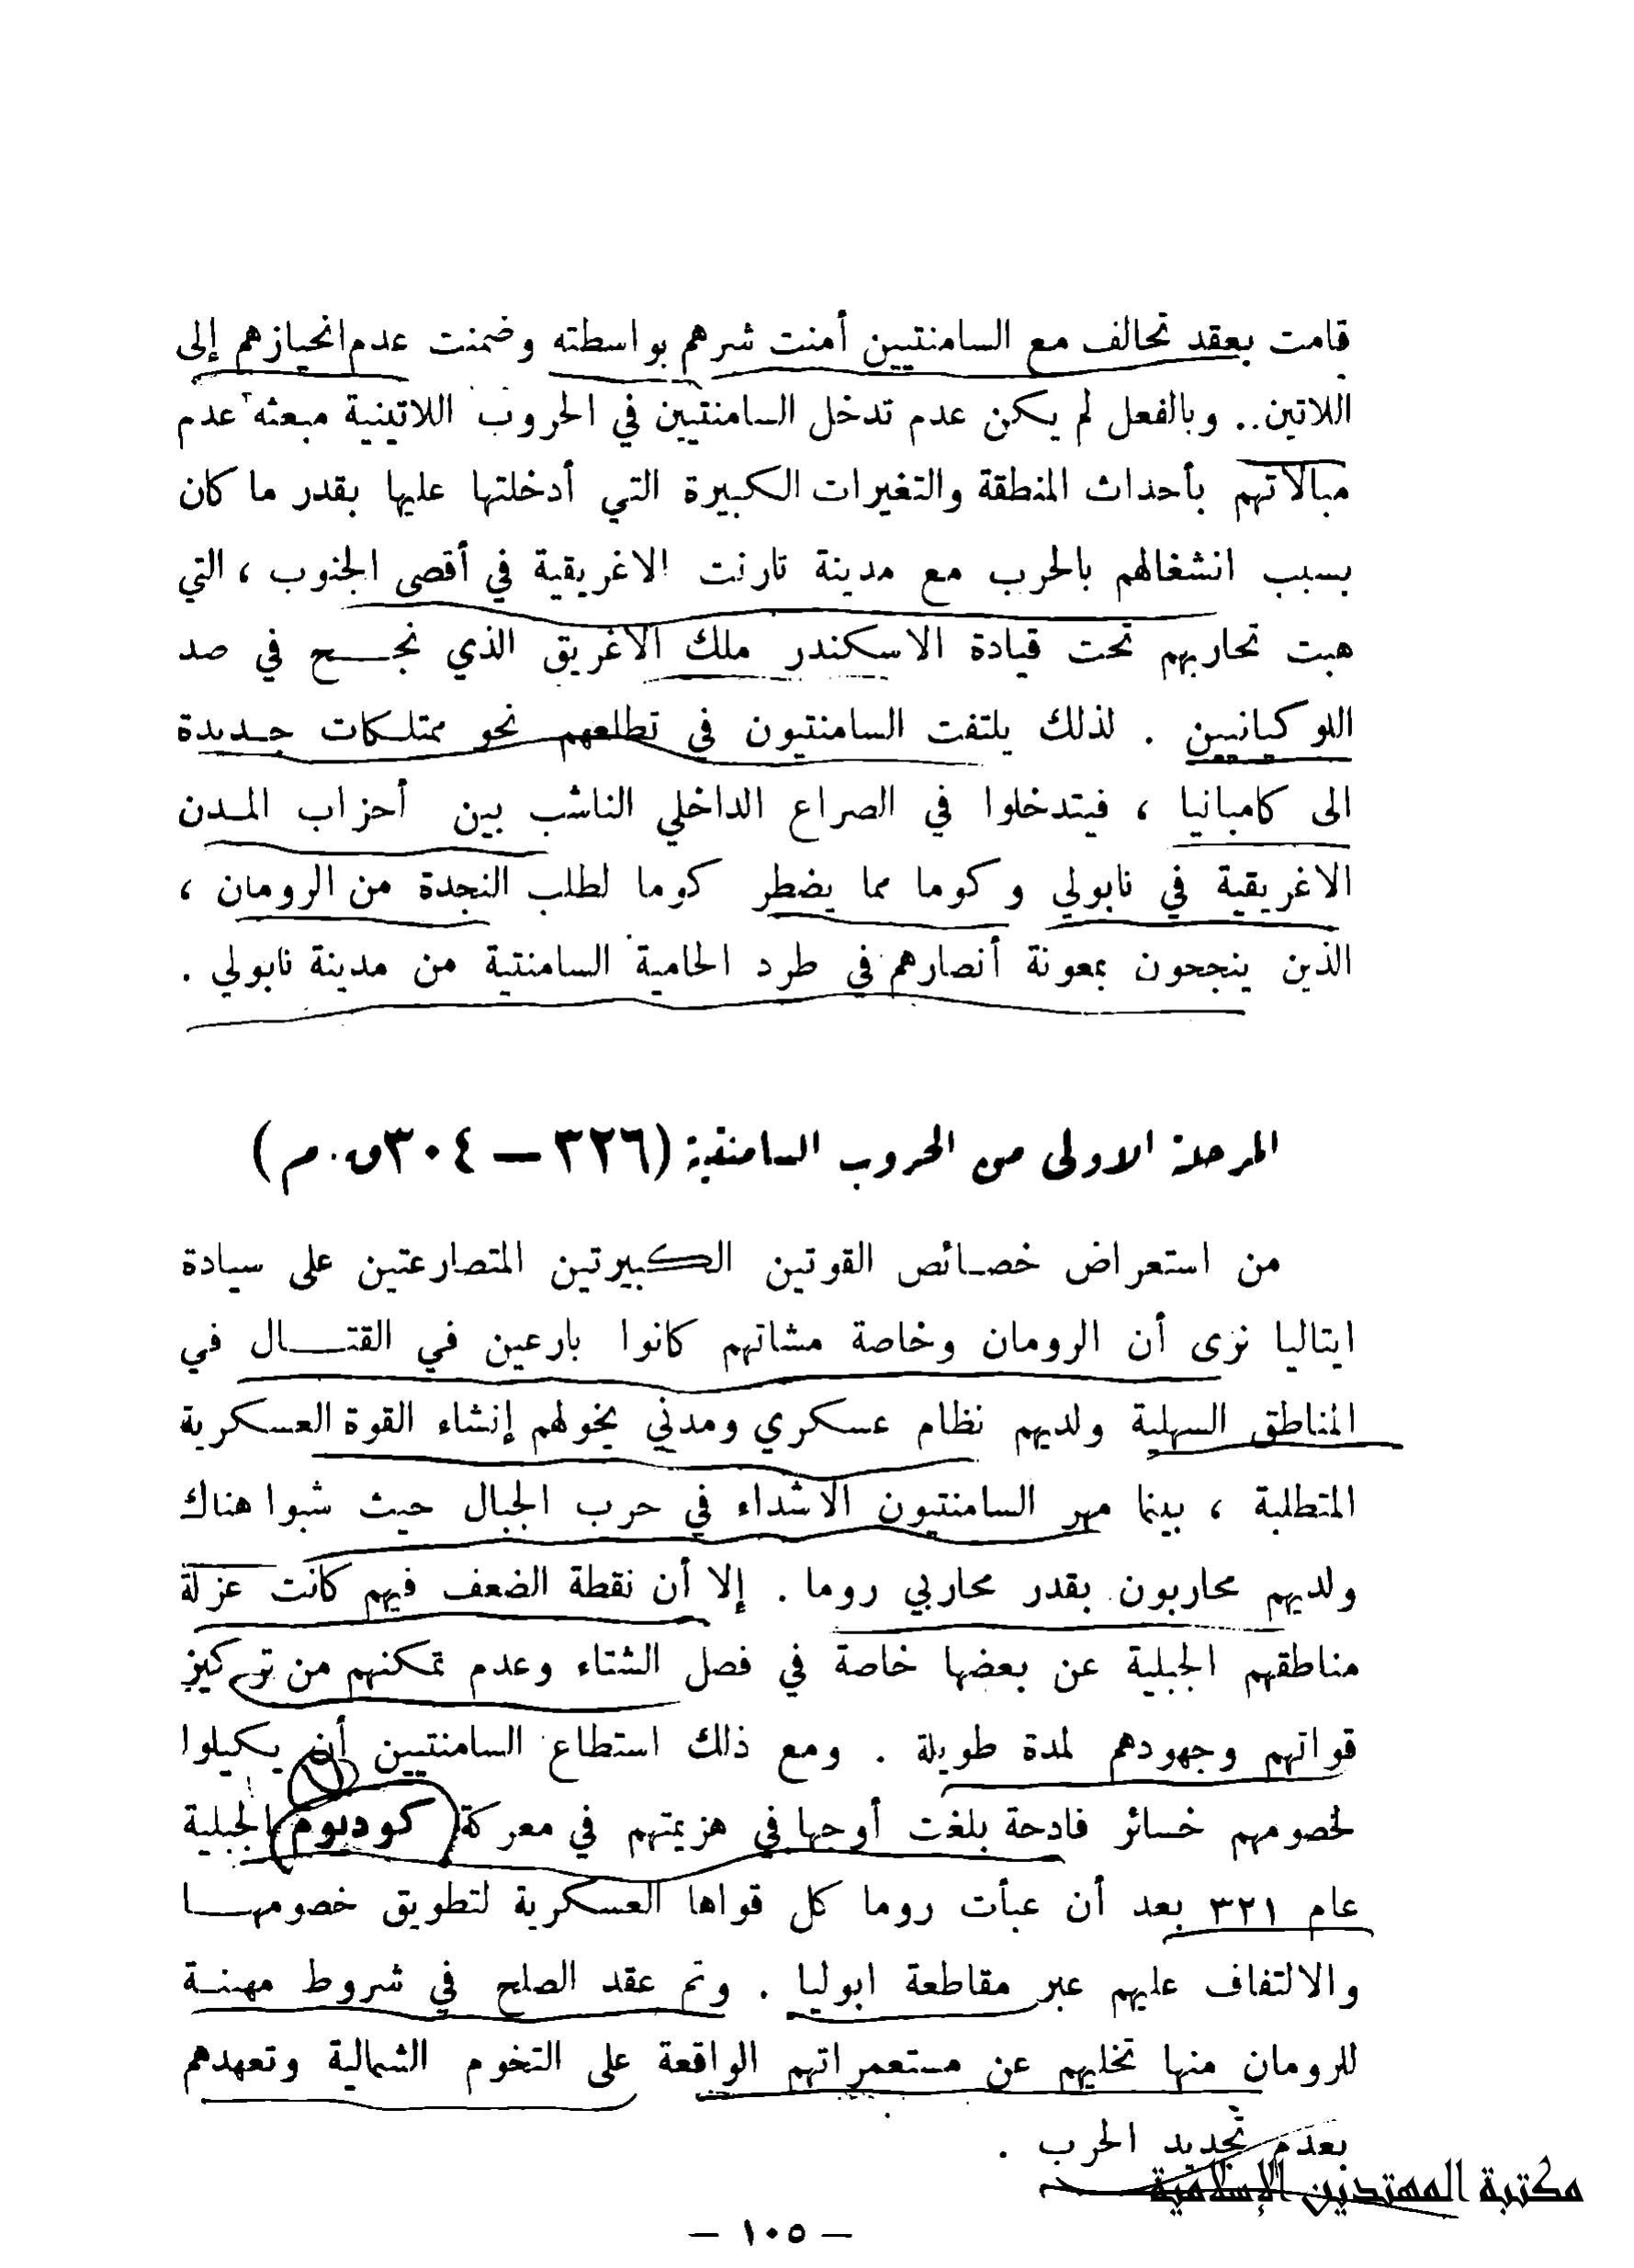 قامت بعقد تحالف مع السامنتيين أمنت شرهم بواسطته وضمنت عدم انحيازهم إلى
اللاتين.. وبالفعل لم يكن عدم تدخل السامنتيين في الحروب اللاتينية مبعثه عدم
مبالاتهم بأحداث المنطقة والتغيرات الكبيرة التي أدخلتها عليها بقدر ما كان
بسبب انشغالهم بالحرب مع مدينة تارنت الاغريقية في أقصى الجنوب ، التي
هبت تحاربهم تحت قيادة الاسكندر ملك الاغريق الذي نجح في صد
اللوكيانيين . لذلك يلتفت السامنتيون في تطلعهم نحو ممتلكات جديدة
الى كامبانيا ، فيتدخلوا في الصراع الداخلي الناشب بين أحزاب المدن
الاغريقية في نابولي وكوما مما يضطر كوما لطلب النجدة من الرومان ،
الذين ينجحون بمعونة أنصارهم في طرد الحامية السامنتية من مدينة نابولي .
المرحلة الاولى من الحروب السامنتية (٣٢٦ — ٣٠٤ق.م)
من استعراض خصائص القوتين الكبيرتين المتصارعتين على سيادة
ايتاليا نرى أن الرومان وخاصة مشاتهم كانوا بارعين في القتال في
المناطق السهلية ولديهم نظام عسكري ومدني يخولهم إنشاء القوة العسكرية
المتطلبة ، بينما مهر السامنتيون الاشداء في حرب الجبال حيث شبوا هناك
ولديهم محاربون بقدر محاربي روما . إلا أن نقطة الضعف فيهم كانت عزلة
مناطقهم الجبلية عن بعضها خاصة في فصل الشتاء وعدم تمكنهم من تركيز
قواتهم وجهودهم لمدة طويلة . ومع ذلك استطاع السامنتيين أن يكيلوا
لخصومهم خسائر فادحة بلغت أوجها في هزيمتهم في معركة كوديوم الجبلية
عام ٣٢١ بعد أن عبأت روما كل قواها العسكرية لتطويق خصومها
والالتفاف عليهم عبر مقاطعة ابوليا . وتم عقد الصلح في شروط مهينة
للرومان منها تخليهم عن مستعمراتهم الواقعة على التخوم الشمالية وتعهدهم
بعدم تجديد الحرب .
مكتبة المهتدين الإسلامية
— ١٠٥ —